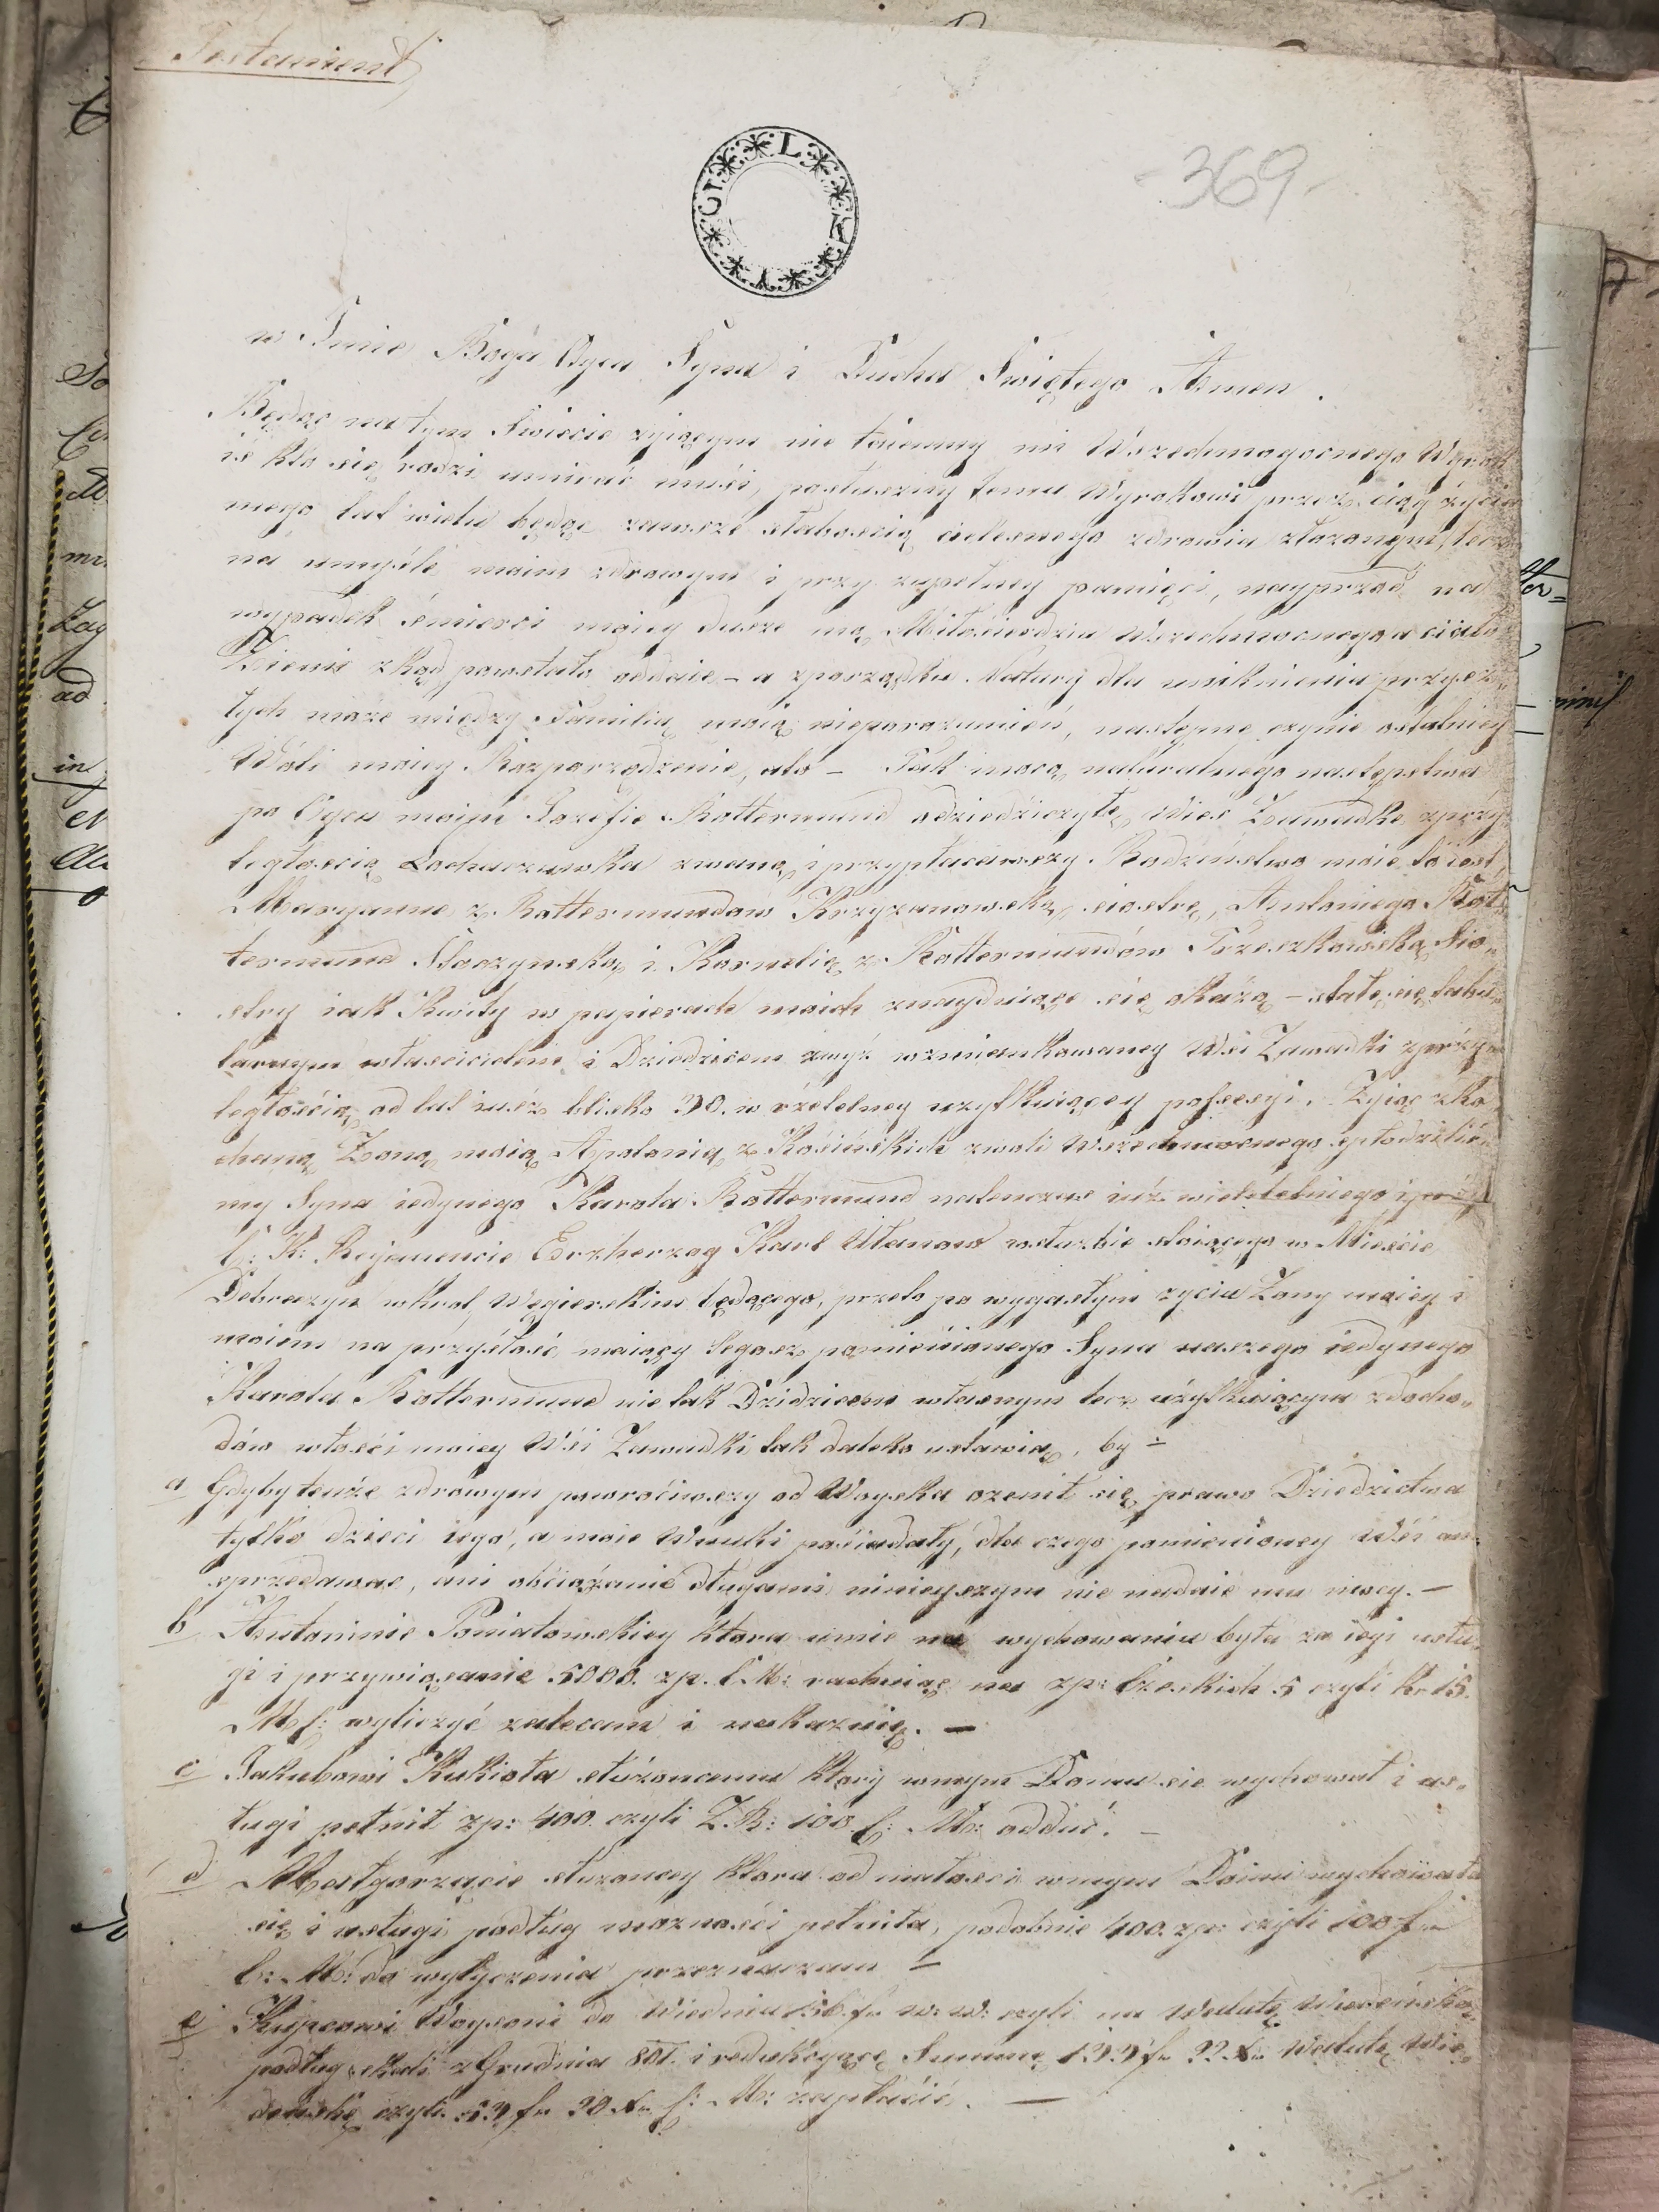 Testament
369
w Imie Boga Oyca Syna i Ducha Swiętego Amen.
Będąc na tym Swiecie zyiącym nie taiemny mi Wszechmogocnego Wyrok
iż kto się rodzi umirać musi, posłuszny temu Wyrokowi przez ciąg życia
mego lat wielu będąc zawsze słabością cielesnego zdrowia złożonym, lecz
na umyśle moim zdrowym i przy zupełney pamięci, nayprzód na
wypadek śmierci moiey dusze mą Miłosierdziu Wszechmocnego a ciało
Ziemi zkąd powstało oddaie – a zporządku Natury dla uniknienia przysz-
łych może między Familią moią nieporozumień, następne czynie ostatniey
Woli moiey Rozporządzenie, oto – Jak mocą naturalnego następstwa
po Oycu moim Jozefie Rottermund odziedziczyłę Wieś Zawadke zprzy-
ległością Lochaczuwka zwaną, i przypłaciwszy Rodzeństwo moie to iest
Maryanne z Rottermundow Krzyżanowską siostrę, Antoniego Rot-
termund Stoczynską i Kornelią z Rottermundów Trzeszkowską Sio-
stry iak Kwity w papierach moich znayduiące się okażą – stałę się tabu-
larnym właścicielem i Dziedzicem zwyż wzmiankowaney Wsi Zawadki zprzy-
ległością, od lat iusz blisko 30. w rzetelney uzytkuiącey possesyi. Żyiąc zko
chaną Żoną moią Apolonią z Kosińskich zwoli Wszechmocnego spłodziliś-
my Syna iedynego Karola Rottermund natenczas iuż wieloletniego i przy
C: K: Rejmencie Erzherzog Karl Ułanow wsłuzbie stoiącego w Mieście
Debreczyn wkról, Węgierskim będącego, przeto po wygasłym zyciu Zony moiey i
moiem na przyszłość maiący tegosz pomienionego Syna naszego iedynego
Karola Rottermund nie tak Dziedzicem własnym lecz użytkuiącym zdocho-
dów włości moiey Wsi Zawadki tak daleko ustawią, by –
a Gdyby tenże zdrowym powrociwszy od Woyska ozenił się prawo Dziedzictwa
tylko dzieci iego, a moie Wnuki posiadały, dla czego pomienioney Wsi an
sprzedawać, ani obciążanie długami ninieyszym nie nadaie mu mocy. –
b Antoninie Poniatowskiey ktora umie na wychowaniu była za ieyi usłu-
gi i przywiązanie 5000. zp. C M: rachuiąc na zp: Czeskich 5 czyli Kr 15.
M C: wyliczyć zalecam i nakazuię. –
c Jakubowi Kukioła słuzoncemu ktory wmym Domu sie wychował i us-
ługi pełnił zp: 400. czyli Z.R: 100 C: M: oddać. –
d Małgorzącie słuzoncey ktora od małosci wmym Domu wychowała
się i usługi podług mozności pełniła, podobnie 400. zp: czyli 100 fr
C: M: do wyłyczenia przeznaczam –
e Kupcowi Woysoni do Wiednia 156. fr w: w: czyli na Walutę Wiedeńska
podług skali z Grudnia 801. i redukoyącą Summę 133 fr 22 xr Walutę Wie-
deńskę czyli 53 fr 20 xr C: M: zapłacić. –